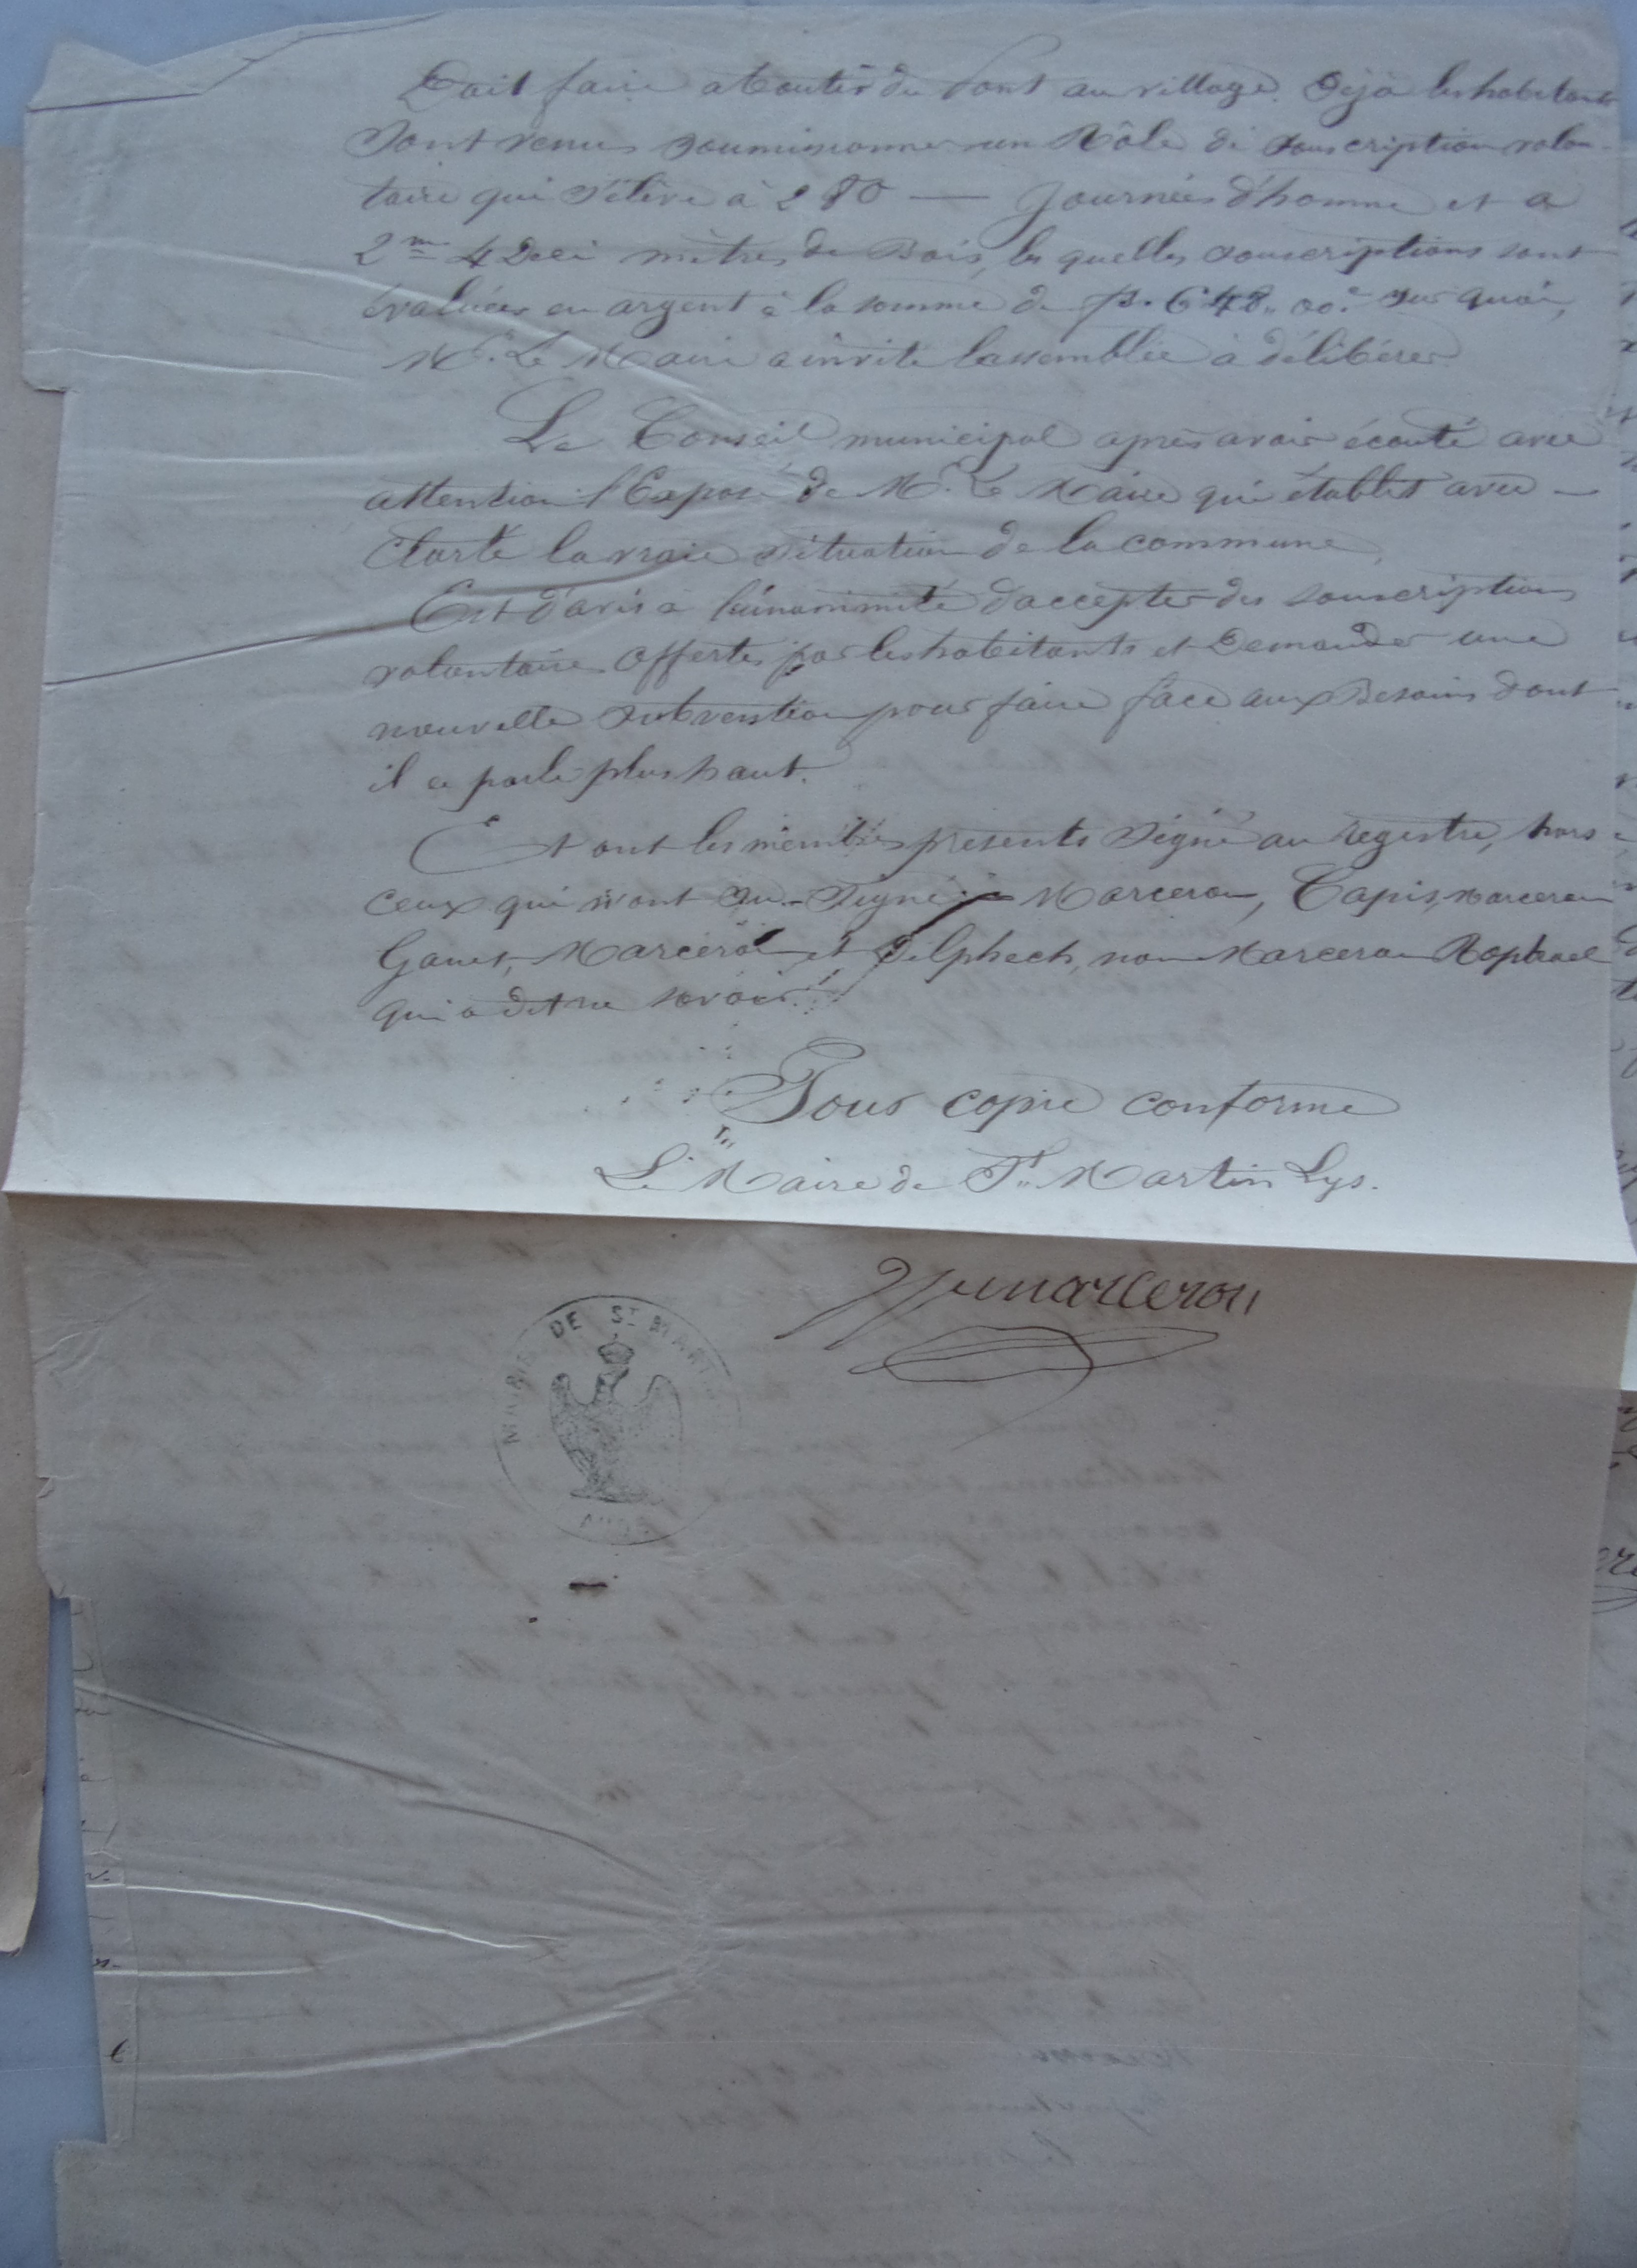 Doit faire aboutir du Pont au village. Déjà les habitants
Sont venus soumissionner un Rôle de souscription volon-
taire qui s'élève à 280 — Journées d'homme et a
2m 4 Deci mètres de Bois, les quelles souscriptions sont
évaluées en argent à la somme de f. 648,, 00c sur quoi,
Mr. Le Maire a invité l'assemblée à délibérer
Le Conseil municipal après avoir écouté avec
attention l'Exposé de Mr. Le Maire qui établit avec —
Clarté la vraie situation de la commune,
Est d'avis à l'unanimité d'accepter des souscriptions
volontaires offertes par les habitants et Demande une
nouvelle subvention pour faire face aux Besoins dont
il a parlé plus haut.
Et ont les membres présents Signé au registre, hors
ceux qui n'ont su. Signés Marceron, Tapis, Marceron
Ganet, Marceron et Delphech, non Marceron Raphael
qui a dit ne savoir
Pour copie conforme
Le Maire de St. Martin Lys.
Marceron
MAIRIE DE ST MARTIN
AUDE